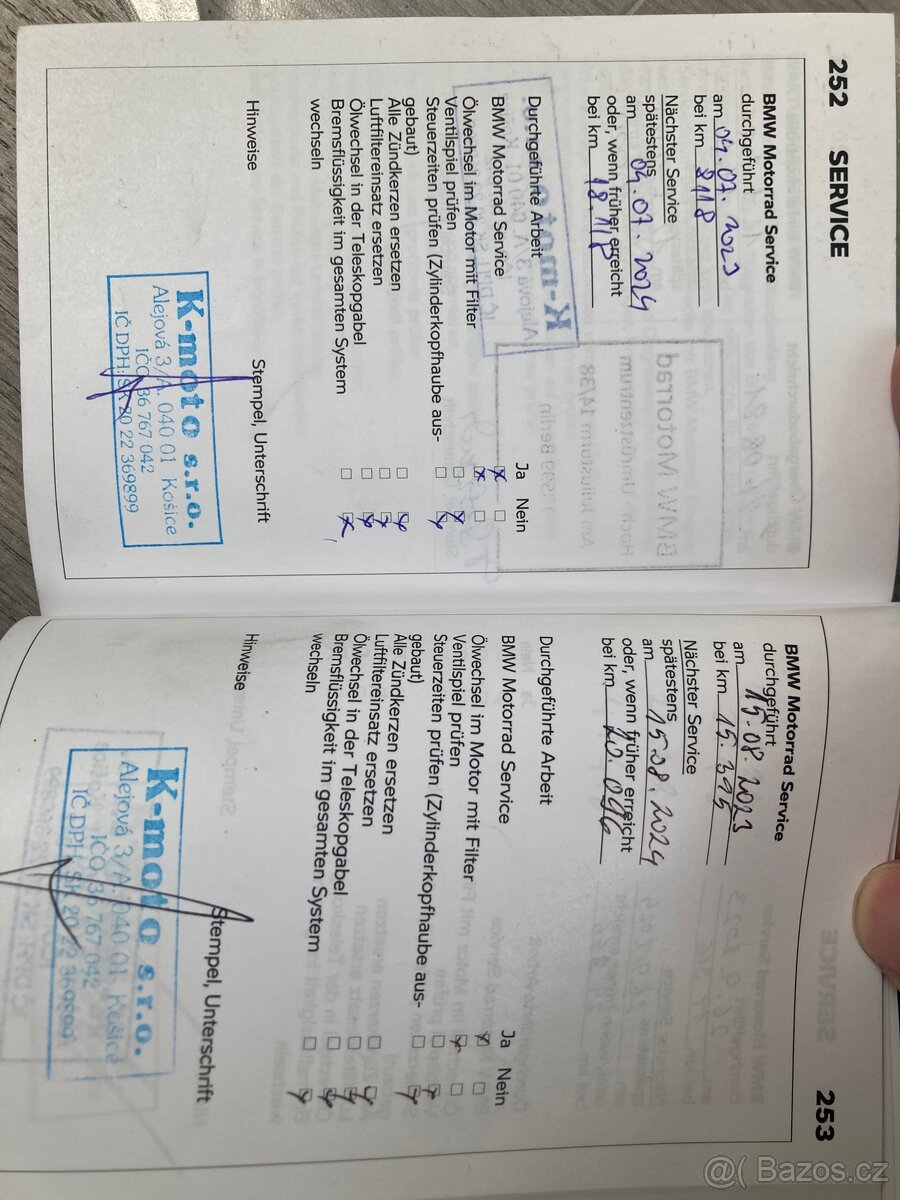 252 SERVICE
BMW Motorrad Service
durchgeführt
am 04.07.2023
bei km 8118
Nächster Service
spätestens
am 04.07.2024
oder, wenn früher erreicht
bei km 18.118
Durchgeführte Arbeit
Ja Nein
BMW Motorrad Service
Ölwechsel im Motor mit Filter
Ventilspiel prüfen
Steuerzeiten prüfen (Zylinderkopfhaube aus-
gebaut)
Alle Zündkerzen ersetzen
Luftfiltereinsatz ersetzen
Ölwechsel in der Teleskopgabel
Bremsflüssigkeit im gesamten System
wechseln
Hinweise
Stempel, Unterschrift
K-moto s.r.o.
Alejová 3/A. 040 01 Košice
IČO: 36 767 042
IČ DPH: SK 20 22 369899
253
BMW Motorrad Service
durchgeführt
am 15.08.2023
bei km 15.395
Nächster Service
spätestens
am 15.08.2024
oder, wenn früher erreicht
bei km
Durchgeführte Arbeit
Ja Nein
BMW Motorrad Service
Ölwechsel im Motor mit Filter
Ventilspiel prüfen
Steuerzeiten prüfen (Zylinderkopfhaube aus-
gebaut)
Alle Zündkerzen ersetzen
Luftfiltereinsatz ersetzen
Ölwechsel in der Teleskopgabel
Bremsflüssigkeit im gesamten System
wechseln
Hinweise
Stempel, Unterschrift
K-moto s.r.o.
Alejová 3/A. 040 01 Košice
IČO: 36 767 042
IČ DPH: SK 20 22 369899
Bazos.cz